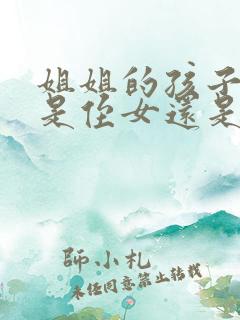 姐姐的孩子
是侄女還是
師小札
未经同意禁止转载